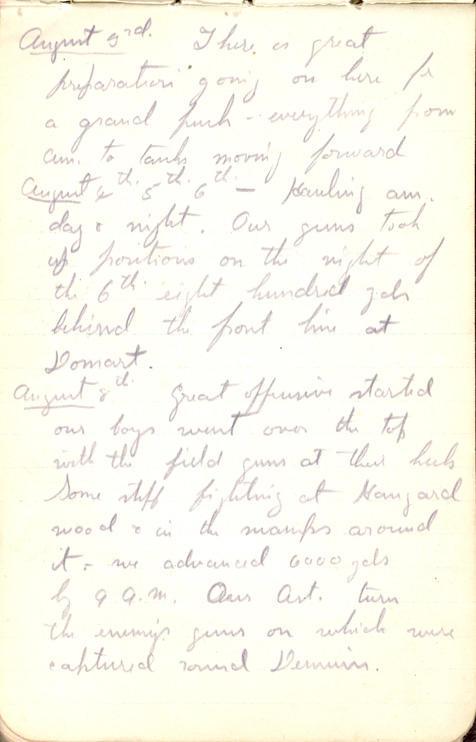 August 3rd. There is great
preparation going on here for
a grand push - everything from
am. to tanks moving forward
August 4th. 5th. 6th. - Hauling am.
day & night. Our guns took
up positions on the night of
the 6th eight hundred yds
behind the front line at
Domart.
August 8th. Great offensive started
our boys went over the top
with the field guns at their heels
Some stiff fighting at Hangard
wood & in the swamps around
it - we advanced 6000 yds
by 9 a.m. Our Art. turn
the enemys guns on which were
captured round Demuin.